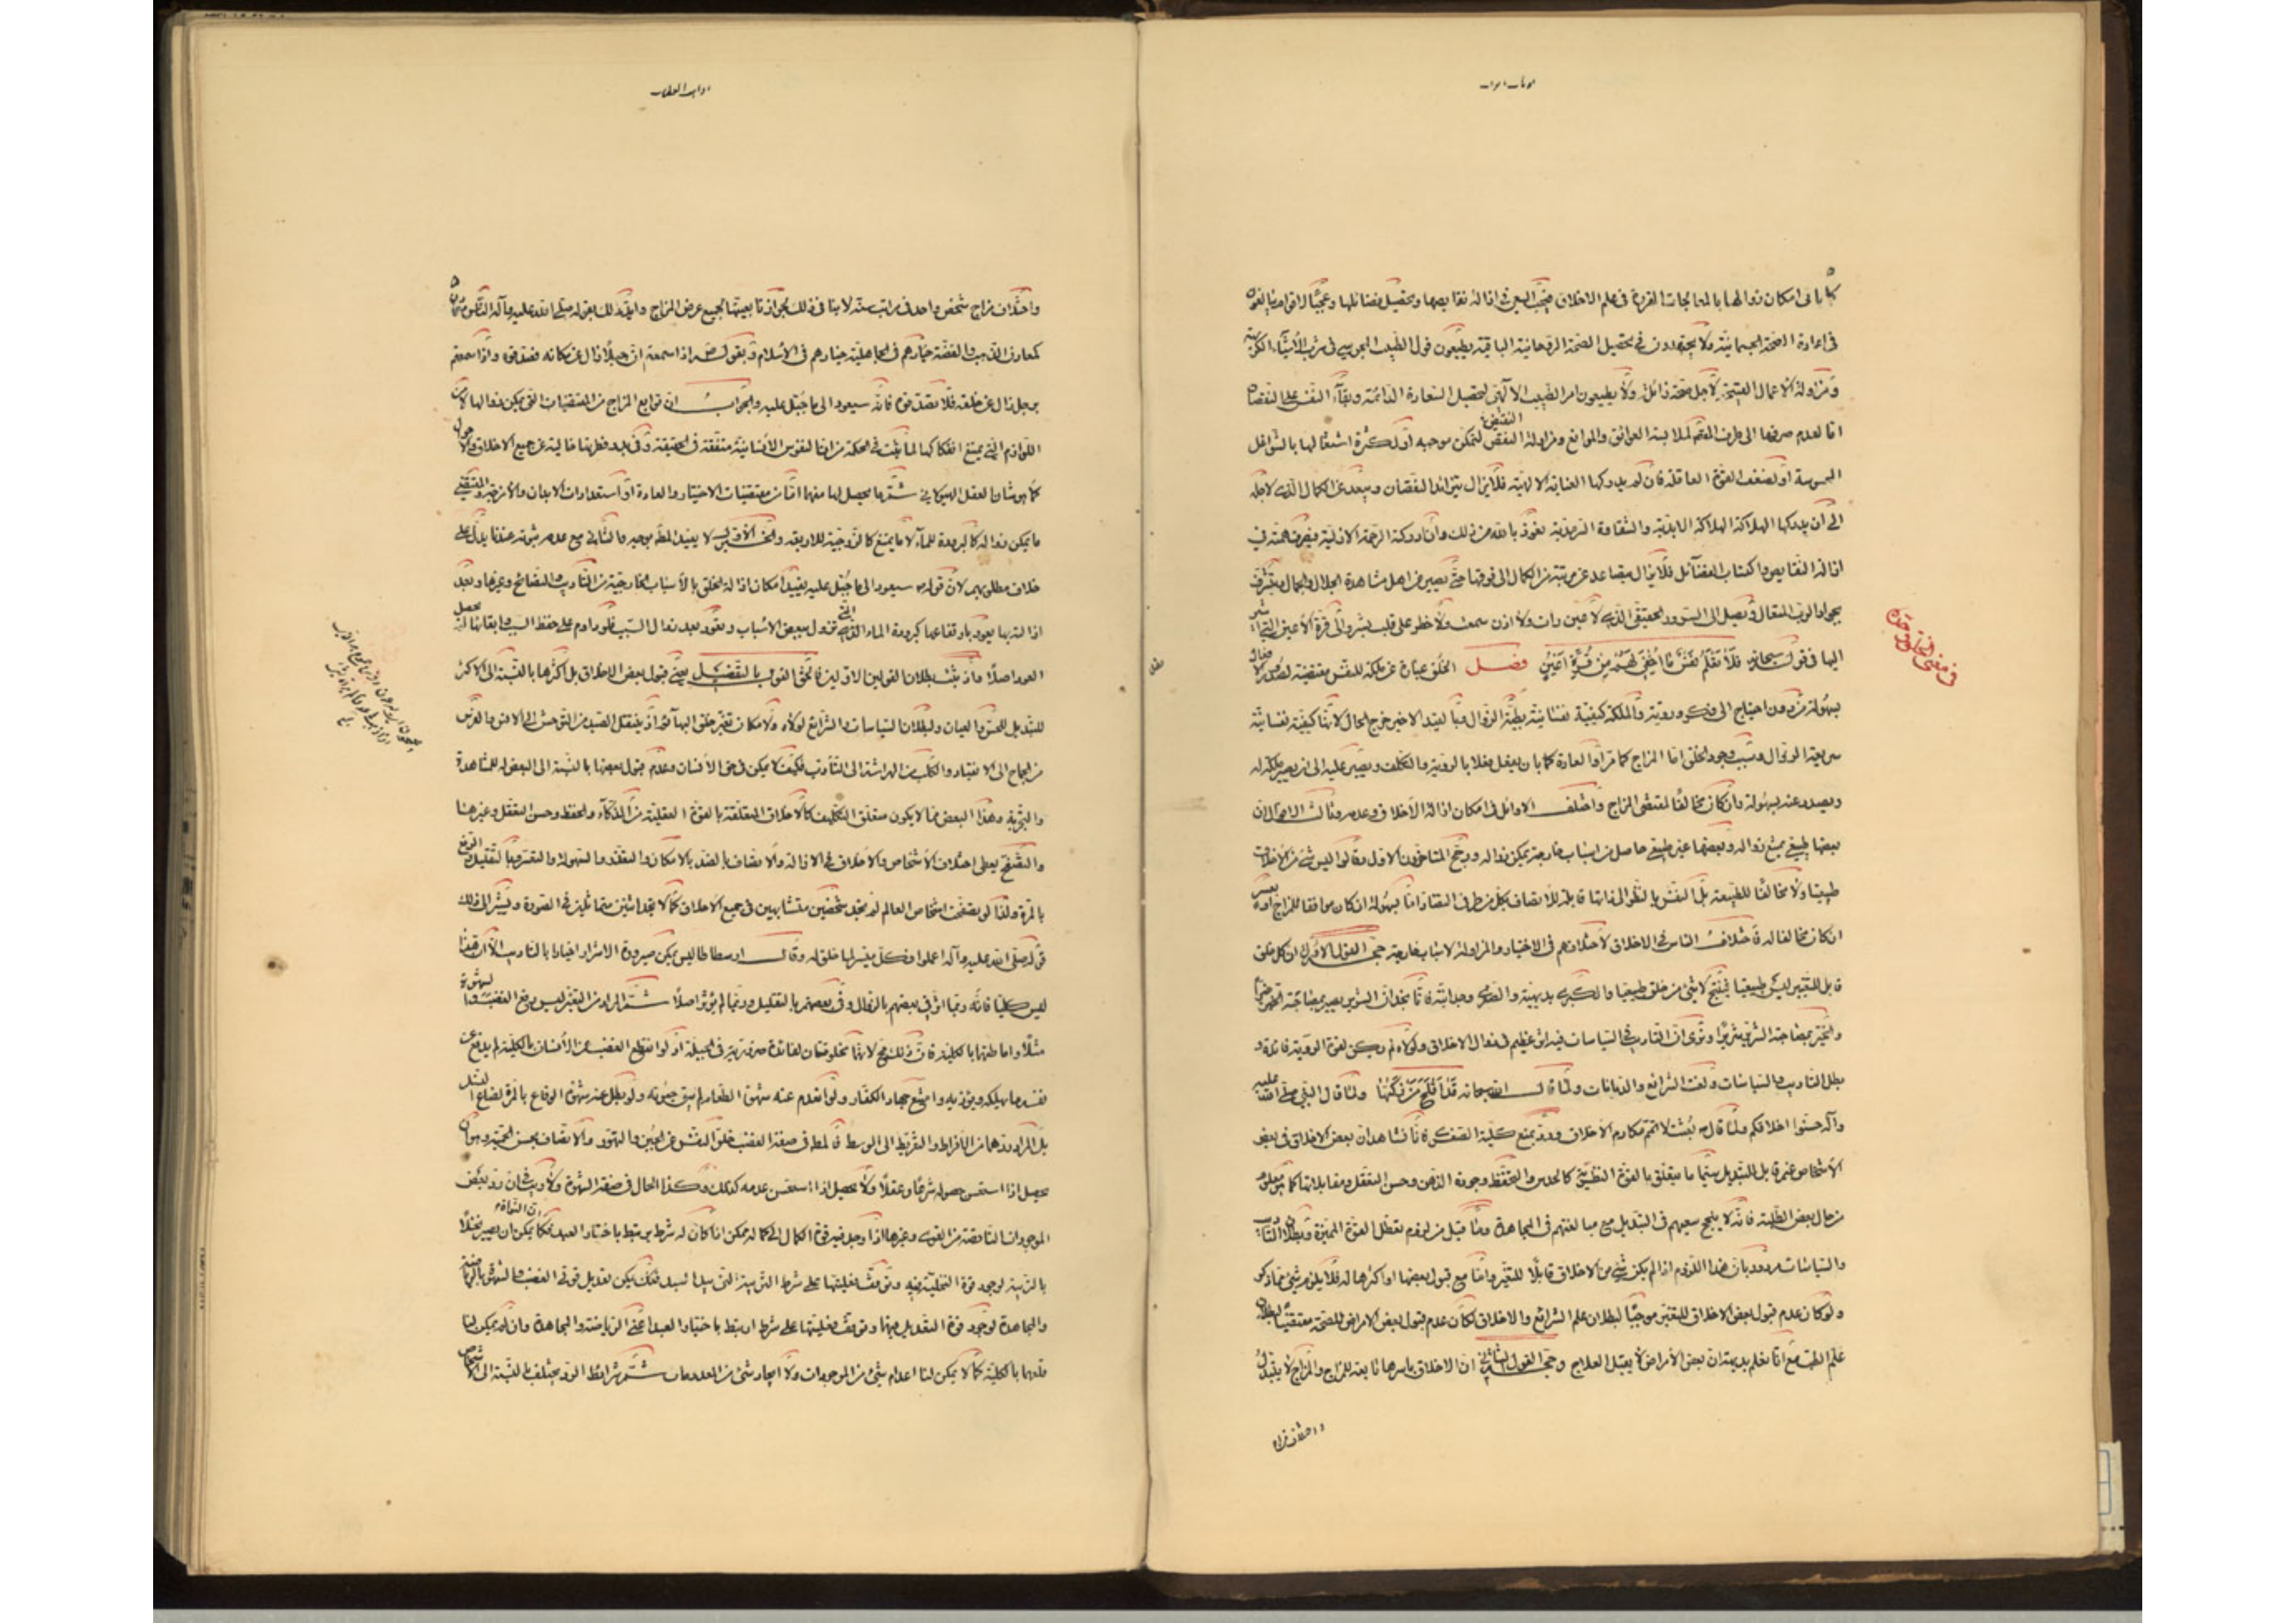 كما يأتى امكان زوالها بالمعالجات المقررة فى علم الاخلاق فيجب السعى فى ازالة نقايصها وتحصيل فضائلها وعجبًا لاقوام يبالغون
فى اعادة الصحة الجسمانية ولا يجتهدون فى تحصيل الصحة الروحانية الباقية يطيعون قول الطبيب المجوسى فى شرب الأشياء الكريهة
ومزاولة الاعمال القبيحة لأجل صحة زائلة ولا يطيعون امر الطبيب الالهى لتحصيل السعادة الدائمة وبقاء النفس على النقصان
اما لعدم صرفها الى طرف لملابسة العوائق والموانع ومزاولة النقيض لتمكن موجبه او لكثرة اشتغالها بالشواغل
المحسوسة او لضعف القوة العاقلة فان لم يدركها العناية الالهية فلا يزال يتزايد النقصان ويبعد عن الكمال الذى لاجله
الى أن يدركها الهلاكة الابدية والشقاوة السرمدية نعوذ بالله من ذلك وان ادركته الرحمة الازلية فيصرف همته فى
ازالة النقايص واكتساب الفضائل فلا يزال يتصاعد من مرتبة من الكمال الى فوقها حتى يصير من اهل مشاهدة الجلال والجمال يتشرف
بجوار الرب المتعال ويصل الى السرور الحقيقى الذى لا عين رات ولا اذن سمعت ولا خطر على قلب بشر والى قرة الاعين التى اشير
اليها فى قوله سبحانه فَلَا تَعْلَمُ نَفْسٌ مَا اُخْفِىَ لَهُمْ مِنْ قُرَّةِ اَعْيُنٍ فصل الخلق عبارة عن ملكة للنفس مقتضية لصدور الافعال
بسهولة من دون احتياج الى فكر وروية والملكة كيفية نفسانية بطيئة الزوال وبالقيد الاخير خرج الحال لانها كيفية نفسانية
سريعة الزوال وسبب وجود الخلق اما المزاج كما مر او العادة كما بان يفعل فعلا بالروية والتكلف ويصبر عليه الى ان يصير ملكة له
ويصدر عنه بسهولة وان كان مخالفًا لمقتضى المزاج واختلف الاوائل فى امكان ازالة الأخلاق وعدمه وثالث الاقوال ان
بعضها طبيعى يمتنع زواله وبعضها غير طبيعى حاصل من اسباب خارجية يمكن زواله ورجح المتأخرون الاول وقالوا ليس شئ من الاخلاق
طبيعيا ولا مخالفًا للطبيعة بل النفس بالنظر الى ذاتها قابلة للاتصاف بكل من طرفى التضاد اما بسهولة ان كان موافقا للمزاج او بعسر
ان كان مخالفا له فاختلاف الناس فى الاخلاق لاختلافهم فى الاختيار والمزاولة لاسباب خارجية حجة القول الاول ان كل خلق
قابل للتغيير ليس طبيعيا ينتج لا شئ من خلق طبيعيا والكبرى بديهية والصغرى وجدانية فانا نجد ان الشرير يصير بمصاحبة الخير خيرًا
والخير بمصاحبة الشرير شريرًا ونرى ان التاديب فى السياسات فيه اثر عظيم فى زوال الاخلاق ولولاه لم يكن لقوة الروية فائدة و
بطل التاديب والسياسات ولغت الشرائع والديانات ولما قال الله سبحانه قَدْ اَفْلَحَ مَنْ زَكّٰهَا ولما قال النبى صلى الله عليه
وآله حسنوا اخلاقكم ولما قال بعثت لاتمم مكارم الأخلاق ورد بمنع كلية الصغرى فانا نشاهد ان بعض الاخلاق فى بعض
الاشخاص غير قابل للتبديل سيما ما يتعلق بالقوة النظرية كالحدس والتحفظ وجودة الذهن وحسن التعقل ومقابلاتها كما هو معلوم
من حال بعض الطلبة فانه لا ينجح سعيهم فى التبديل مع مبالغتهم فى المجاهدة وما قيل من لزوم تعطل القوة المميزة وبطلان التاديب
والسياسات مردود بان هذا اللزوم اذا لم يكن شئ من الاخلاق قابلا للتغير واما مع قبول بعضها او اكثرها له فلا يلزم شئ مما ذكر
ولو كان عدم قبول بعض الاخلاق للتغير موجبًا لبطلان علم الشرائع والاخلاق لكان عدم قبول بعض الامراض للصحة مقتضيًا لبطلان
علم الطب مع انا نعلم بديهة ان بعض الأمراض لا يقبل العلاج وحجة القول الثانى ان الاخلاق باسرها تابعة للمزاج والمزاج لا يتبدل
واختلاف مزاج
فى معنى الخلق
واختلاف مزاج شخص واحد فى مراتب سنه لا ينافى ذلك لجواز تابعيتها لجميع عرض المزاج وايد ذلك بقوله صلى الله عليه وآله الناس معادن
كمعادن الذهب والفضة خيارهم فى الجاهلية خيارهم فى الاسلام وبقوله اذا سمعتم ان جبلا زال عن مكانه فصدقوه واذا سمعتم
برجل زال عن خلقه فلا تصدقوه فانه سيعود الى ما جبل عليه والجواب ان توابع المزاج من المقتضيات التى يمكن زوالها لا من
اللوازم التى يمتنع انفكاكها لما ثبت فى الحكمة من ان النفوس الانسانية متفقة فى الحقيقة وفى بدو فطرتها خالية عن جميع الاخلاق والاحوال
كما هو شان العقل الهيولانى ثم ما يحصل لها منهما اما من مقتضيات الاختيار والعادة او استعدادات الابدان والأمزجة والمقتضى
ما يمكن زواله كالبرودة للماء لا ما يمتنع كالزوجية للاربعة والخبر الاول لا يفيد المطلوب والثانى مع عدم ثبوته عندنا يدل على
خلاف مطلوبهم لان قوله سيعود الى ما جبل عليه يفيد امكان ازالة الخلق بالاسباب الخارجية من التأديب والنصائح وغيرها وبعد
ازالته بها يعود بارتفاعها كبرودة الماء التى تزول ببعض الاسباب وتعود بعد زوال السبب فلو داوم على حفظ السبب وابقائه لم يحصل
العود اصلا واذ ثبت بطلان القولين الاولين فالحق القول بالتفصيل يعنى قبول بعض الاخلاق بل اكثرها بالنسبة الى الاكثر
للتبديل للحس والعيان ولبطلان السياسات والشرائع لولاه ولامكان تغير خلق البهائم اذ ينتقل الصيد من التوحش الى الانس والفرس
من الجماح الى الانقياد والكلب من الهراشة الى التأدب فكيف لا يمكن فى حق الانسان وعدم قبول بعضها بالنسبة الى البعض له للمشاهدة
والتجربة وهذا البعض مما لا يكون متعلق التكليف كالاخلاق المتعلقة بالقوة العقلية من الذكاء والحفظ وحسن التعقل وغيرها
والتصفح يعطى اختلاف الأشخاص والاخلاق فى الازالة والاتصاف بالضد بالامكان والتعذر والسهولة والتعسر وبالتقليل والرفع
بالمرة ولذا لو تصفحت اشخاص العالم لم تجد شخصين متشابهين فى جميع الاخلاق كما لا تجد اثنين متماثلين فى الصورة ويشير الى ذلك
قوله صلى الله عليه وآله اعملوا فكل ميسر لما خلق له وقال ارسطاطاليس يمكن صيرورة الاشرار اخيارا بالتاديب الا ان هذا
ليس كليا فانه ربما اثر فى بعضهم بالزوال وفى بعضهم بالتقليل وربما لم يؤثر اصلا ثم المراد من التغير ليس رفع الغضب والشهوة
مثلا واماطتها بالكلية فان ذلك محال لانهما مخلوقتان لفائدة ضرورية فى الجبلة اذ لو انقطع الغضب عن الانسان بالكلية لم يدفع عن
نفسه ما يهلكه ويؤذيه وامتنع جهاد الكفار ولو انعدم عنه شهوة الطعام لم تبق حيوته ولو بطل عنه شهوة الوقاع بالمرة لضاع النسل
بل المراد ردهما من الافراط والتفريط الى الوسط فالمط فى صفة الغضب خلو النفس عن الجبن والتهور والاتصاف بحسن الحمية وهو ان
يحصل اذا استحسن حصوله شرعًا وعقلا ولا يحصل اذا استحسن عدمه كذلك وكذا الحال فى صفة الشهوة ولا ريب فى ان رد بعض
الموجودات الناقصة من القوى وغيرها اذا وجد فيه قوة الكمال الى كماله ممكن اذا كان له شرط يرتبط باختيار العبد فكما يمكن ان يصير نخلا
بالتربية لوجود قوة النخلية فيه وتوقف فعليتها على شرط التربية التى بيد العبد فكذلك يمكن تعديل قوتى الغضب والشهوة بالرياضة
والمجاهدة لوجود قوة التعديل فيها وتوقف فعليتها على شرط ارتبط باختيار العبد اعنى الرياضة والمجاهدة وان لم يمكن لنا
قلعها بالكلية كما لا يمكن لنا اعدام شئ من الموجودات ولا ايجاد شئ من المعدومات ثم شرائط الرد يختلف بالنسبة الى الاشخاص